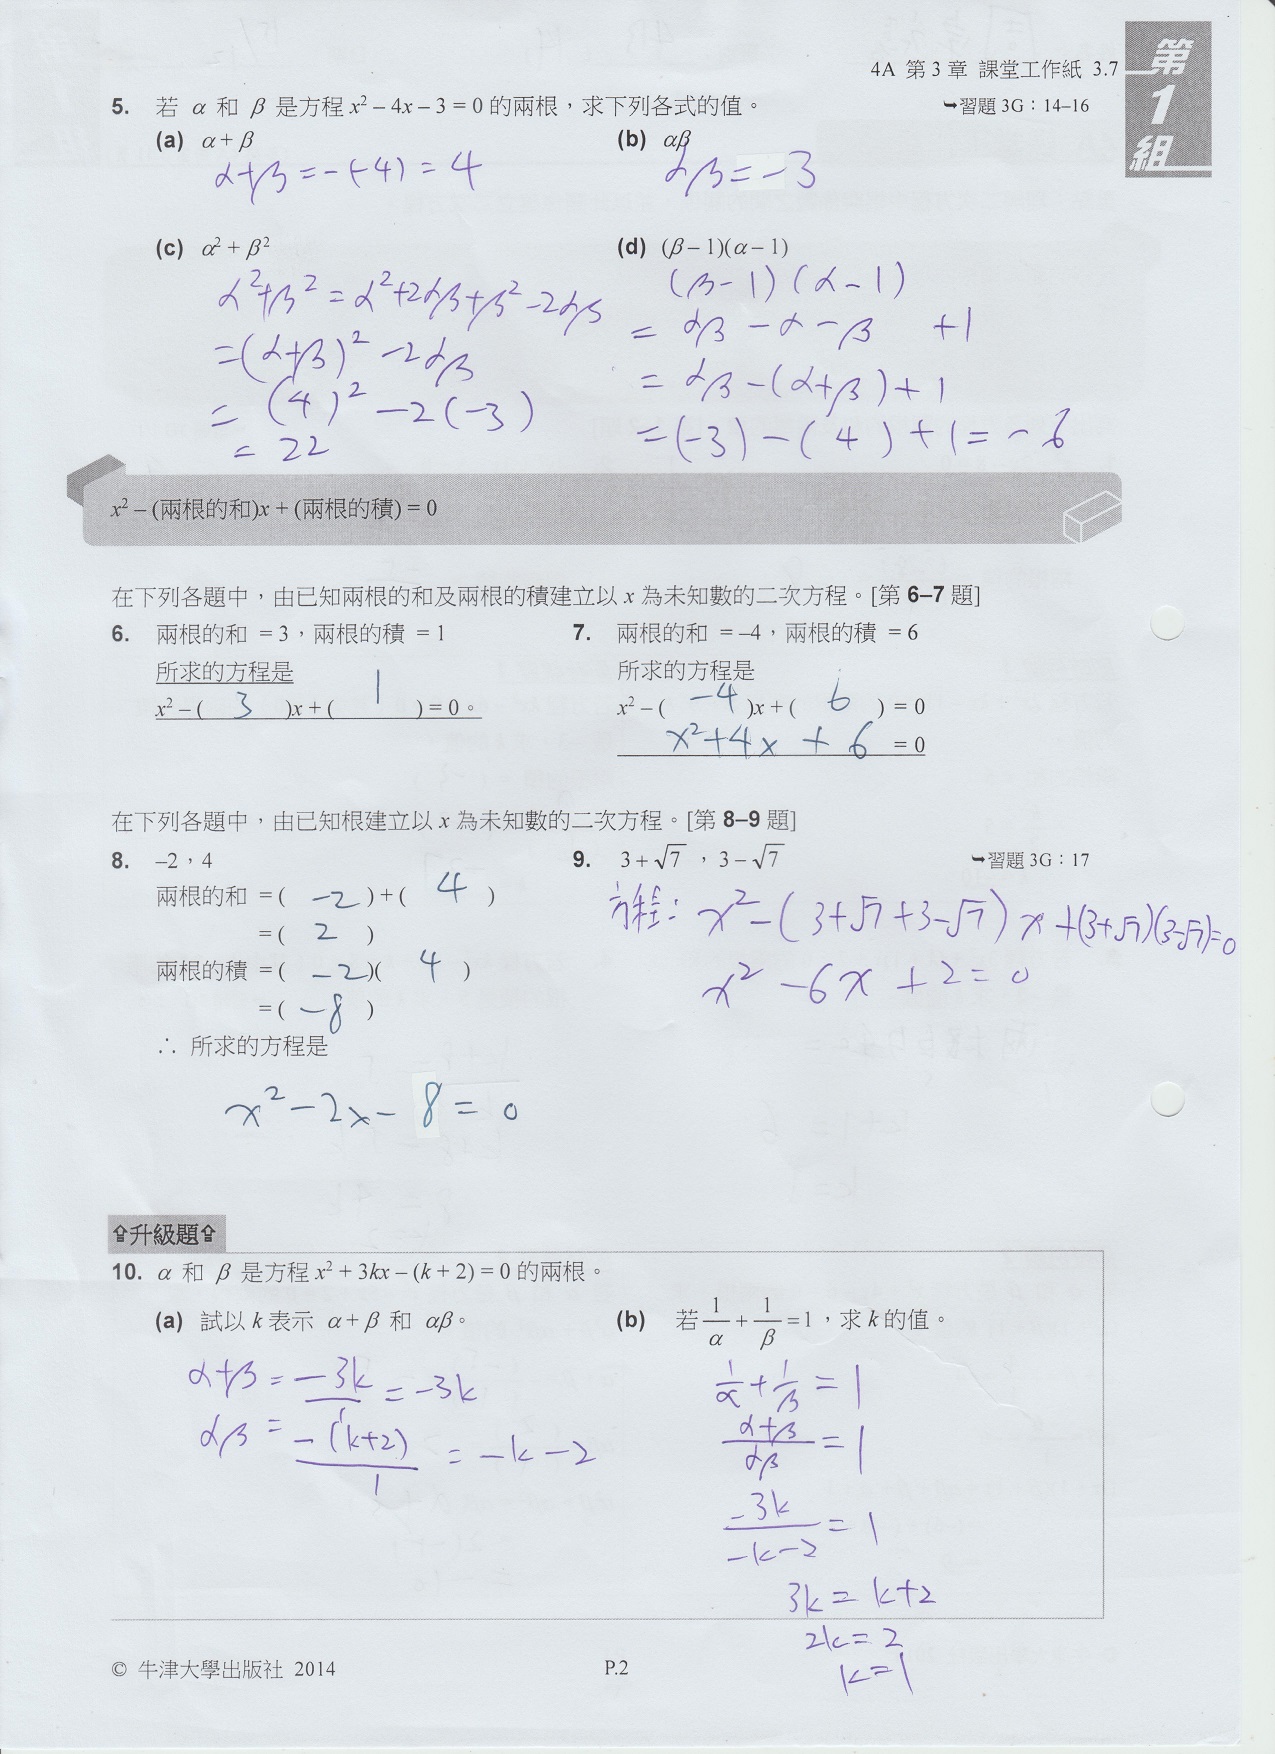 4A 第 3 章 課堂工作紙 3.7
第1組
5. 若 α 和 β 是方程 x² – 4x – 3 = 0 的兩根，求下列各式的值。
➥習題 3G：14–16
(a) α + β
α+β = -(-4) = 4
(b) αβ
αβ = -3
(c) α² + β²
α²+β² = α²+2αβ+β²-2αβ
=(α+β)² -2αβ
= (4)² -2(-3)
= 22
(d) (β – 1)(α – 1)
(β-1)(α-1)
= αβ -α-β +1
= αβ-(α+β)+1
=(-3)-(4)+1=-6
x² – (兩根的和)x + (兩根的積) = 0
在下列各題中，由已知兩根的和及兩根的積建立以 x 為未知數的二次方程。[第 6–7 題]
6. 兩根的和 = 3，兩根的積 = 1
所求的方程是
x² – ( 3 )x + ( 1 ) = 0。
7. 兩根的和 = –4，兩根的積 = 6
所求的方程是
x² – ( -4 )x + ( 6 ) = 0
x²+4x + 6 = 0
在下列各題中，由已知根建立以 x 為未知數的二次方程。[第 8–9 題]
8. –2，4
兩根的和 = ( -2 ) + ( 4 )
= ( 2 )
兩根的積 = ( -2 )( 4 )
= ( -8 )
∴ 所求的方程是
x² -2x- 8 = 0
9. 3 + √7 ，3 – √7
➥習題 3G：17
方程: x² -(3+√7+3-√7) x +(3+√7)(3-√7)=0
x² -6x +2=0
⇧升級題⇧
10. α 和 β 是方程 x² + 3kx – (k + 2) = 0 的兩根。
(a) 試以 k 表示 α + β 和 αβ。
α+β = -3k/1 = -3k
αβ = -(k+2)/1 = -k-2
(b) 若 1/α + 1/β = 1，求 k 的值。
1/α + 1/β = 1
(α+β)/αβ = 1
-3k/(-k-2) = 1
3k = k+2
2k = 2
k=1
© 牛津大學出版社 2014
P.2